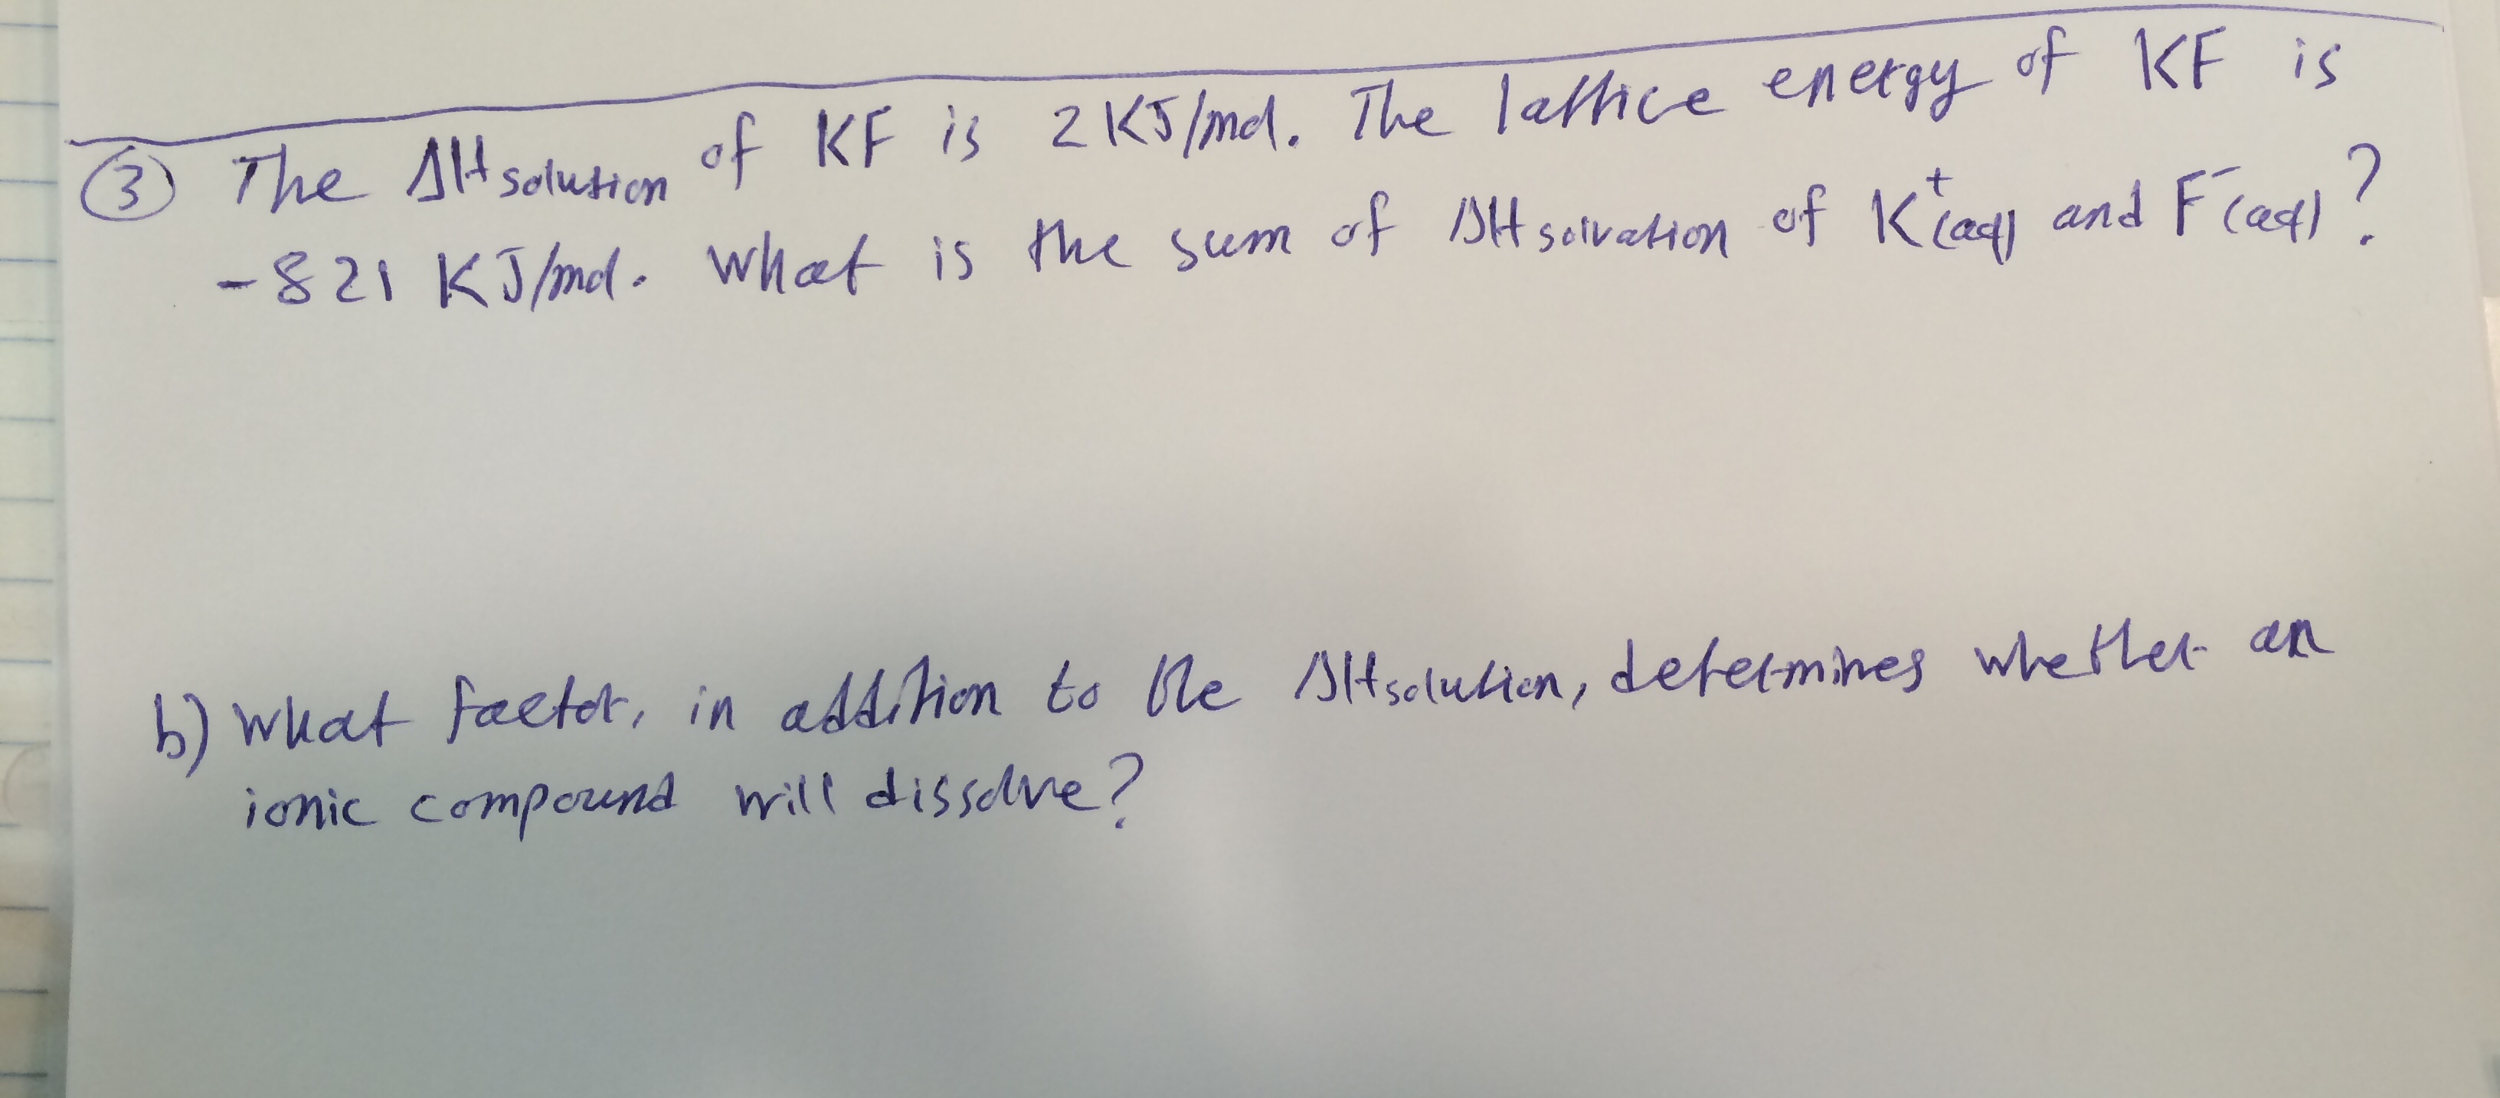 ③ The ΔHsolution of KF is 2 KJ/mol. The lattice energy of KF is
-821 KJ/mol. What is the sum of ΔHsolvation of K⁺(aq) and F⁻(aq)?
b) What factor, in addition to the ΔHsolution, determines whether an
ionic compound will dissolve?